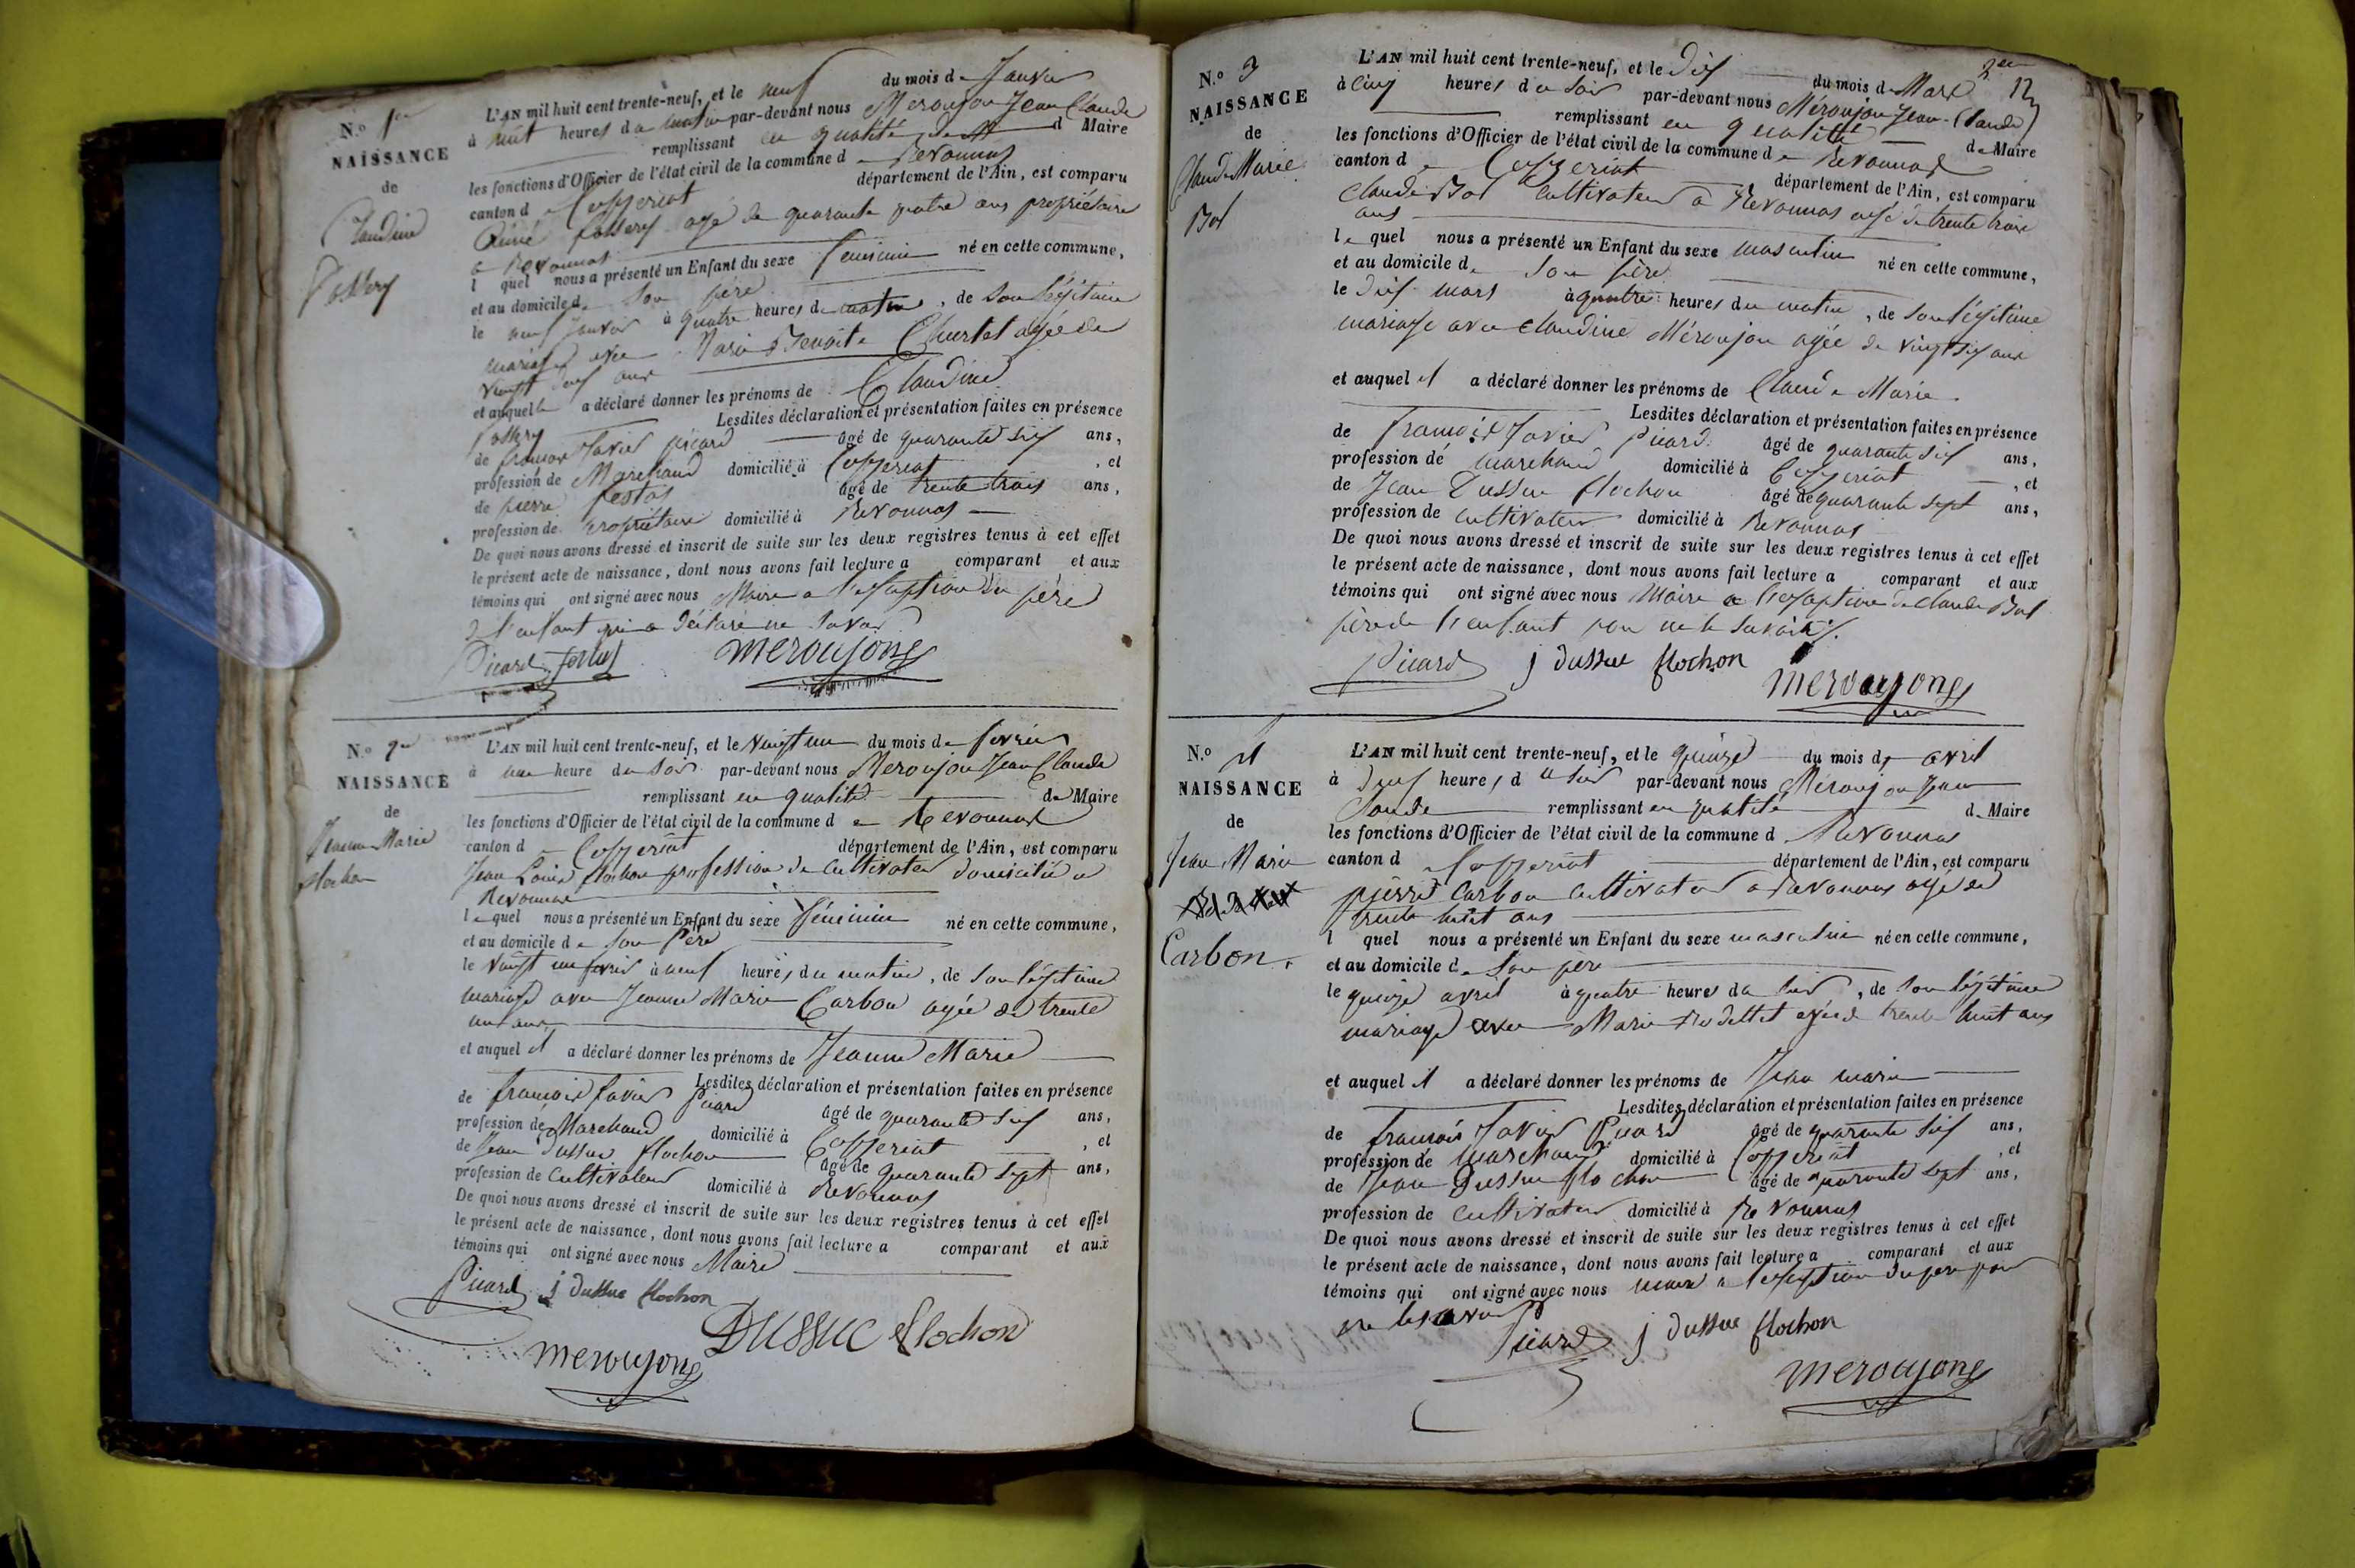 N.º 1er
NAISSANCE
de
Claudine
L'AN mil huit cent trente-neuf, et le neuf du mois de Janvier
à huit heures du matin par-devant nous Meroujon Jean Claude
remplissant en qualité de d Maire
les fonctions d'Officier de l'état civil de la commune de Revonnas
canton de Ceyzeriat département de l'Ain, est comparu
agé de quarante quatre ans propriétaire
a Revonnas
l quel nous a présenté un Enfant du sexe feminin né en cette commune,
et au domicile de son père
le neuf Janvier à quatre heures du matin, de son légitime
mariage avec Marie Benoite Churlet agée de
vingt neuf ans
et auquel a déclaré donner les prénoms de Claudine
Lesdites déclaration et présentation faites en présence
de françois Xavier picard âgé de quarante six ans,
profession de Marchand domicilié à Ceyzeriat, et
de pierre festas âgé de trente trois ans,
profession de propriétaire domicilié à Revonnas
De quoi nous avons dressé et inscrit de suite sur les deux registres tenus à cet effet
le présent acte de naissance, dont nous avons fait lecture a comparant et aux
témoins qui ont signé avec nous Maire a l'exseption du père
de l'enfant qui a déclaré ne savoir
Picard
meroujong
N.º 2
NAISSANCE
de
Jeanne Marie
flochon
L'AN mil huit cent trente-neuf, et le vingt un du mois de fevrier
à une heure du soir par-devant nous Meroujon Jean Claude
remplissant en qualité de Maire
les fonctions d'Officier de l'état civil de la commune de Revonnas
canton d Ceyzeriat département de l'Ain, est comparu
Jean Louis flochon profession de cultivateur domicilié a
Revonnas
le quel nous a présenté un Enfant du sexe féminin né en cette commune,
et au domicile de son père
le vingt un fevrier à neuf heures du matin, de son légitime
mariage avec Jeanne Marie Carbon agée de trente
un ans
et auquel il a déclaré donner les prénoms de Jeanne Marie
Lesdites déclaration et présentation faites en présence
de françois Xavier Picard âgé de quarante six ans,
profession de Marchand domicilié à Ceyzeriat, et
de Jean Dussuc flochon âgé de quarante sept ans,
profession de cultivateur domicilié à Revonnas
De quoi nous avons dressé et inscrit de suite sur les deux registres tenus à cet effet
le présent acte de naissance, dont nous avons fait lecture a comparant et aux
témoins qui ont signé avec nous Maire
Picard j dussuc flochon
DUSSUC flochon
meroujong
12
N.º 3
NAISSANCE
de
Claude Marie
Bol
L'AN mil huit cent trente-neuf, et le dix du mois de Mars
à cinq heures du soir par-devant nous Méroujon Jean-Claude
remplissant en qualité de Maire
les fonctions d'Officier de l'état civil de la commune de Revonnas
canton de Ceyzeriat département de l'Ain, est comparu
Claude Bol cultivateur a Revonnas agé de trente trois
ans
le quel nous a présenté un Enfant du sexe masculin né en cette commune,
et au domicile de son père
le dix mars à quatre heures du matin, de son légitime
mariage avec Claudine Méroujon agée de vingt six ans
et auquel il a déclaré donner les prénoms de Claude Marie
Lesdites déclaration et présentation faites en présence
de françois Xavier Picard âgé de quarante six ans,
profession de marchand domicilié à Ceyzeriat, et
de Jean Dussuc flochon âgé de quarante sept ans,
profession de cultivateur domicilié à Revonnas
De quoi nous avons dressé et inscrit de suite sur les deux registres tenus à cet effet
le présent acte de naissance, dont nous avons fait lecture a comparant et aux
témoins qui ont signé avec nous Maire a l'exseption de Claude Bol
père de l'enfant pour ne le savoir
Picard j dussuc flochon
meroujong
N.º 4
NAISSANCE
de
Jean Marie
Carbon.
L'AN mil huit cent trente-neuf, et le quinze du mois d avril
à neuf heures du soir par-devant nous Méroujon Jean
Claude remplissant en qualité de Maire
les fonctions d'Officier de l'état civil de la commune d Revonnas
canton d Ceyzeriat département de l'Ain, est comparu
pierre Carbon cultivateur a Revonnas agé de
trente huit ans
l quel nous a présenté un Enfant du sexe masculin né en cette commune,
et au domicile de son père
le quinze avril à quatre heures du soir, de son légitime
mariage avec Marie agée de trente huit ans
et auquel il a déclaré donner les prénoms de Jean marie
Lesdites déclaration et présentation faites en présence
de françois Xavier Picard âgé de quarante six ans,
profession de Marchand domicilié à Ceyzeriat, et
de Jean Dussuc flochon âgé de quarante sept ans,
profession de cultivateur domicilié à Revonnas
De quoi nous avons dressé et inscrit de suite sur les deux registres tenus à cet effet
le présent acte de naissance, dont nous avons fait lecture a comparant et aux
témoins qui ont signé avec nous maire a l'exseption du père pour
ne le savoir
Picard j dussuc flochon
meroujong